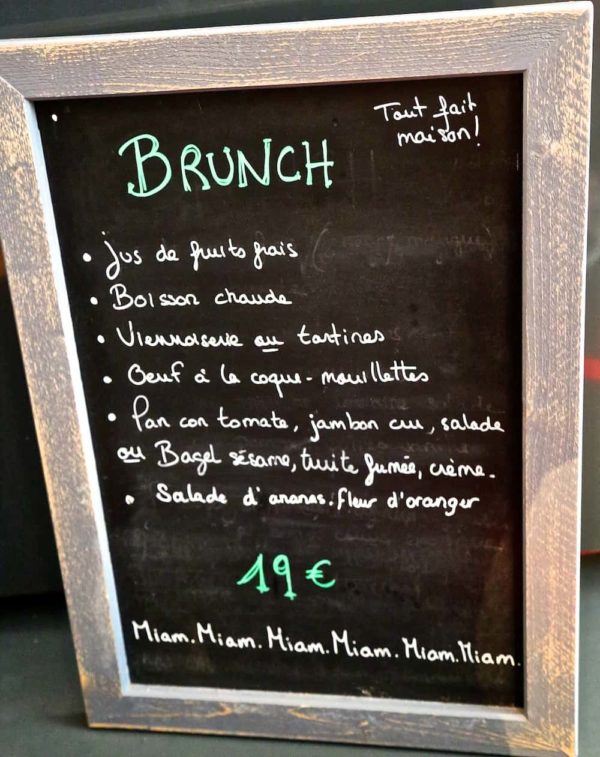 Tout fait
maison!
BRUNCH
• Jus de fruits frais
• Boisson chaude
• Viennoiserie ou tartines
• Oeuf à la coque - mouillettes
• Pan con tomate, jambon cru, salade
ou Bagel sésame, truite fumée, crème.
• Salade d'ananas. fleur d'oranger
19 €
Miam. Miam. Miam. Miam. Miam. Miam.